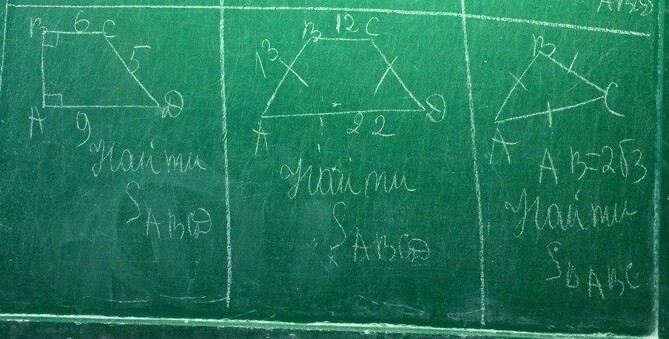 B 6 C
5
A 9 D
Найти
S ABCD
B 12 C
13
A 22 D
Найти
S ABCD
B
C
A
AB=2√3
Найти
S△ABC